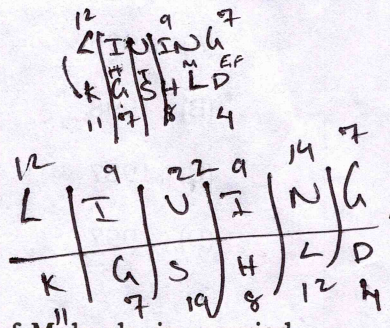 12 9 7
L I N I N G
H I M E,F
K G S H L D
11 7 8 4
12 9 22 9 14 7
L I U I N G
K G S H L D
11 7 19 8 12 4